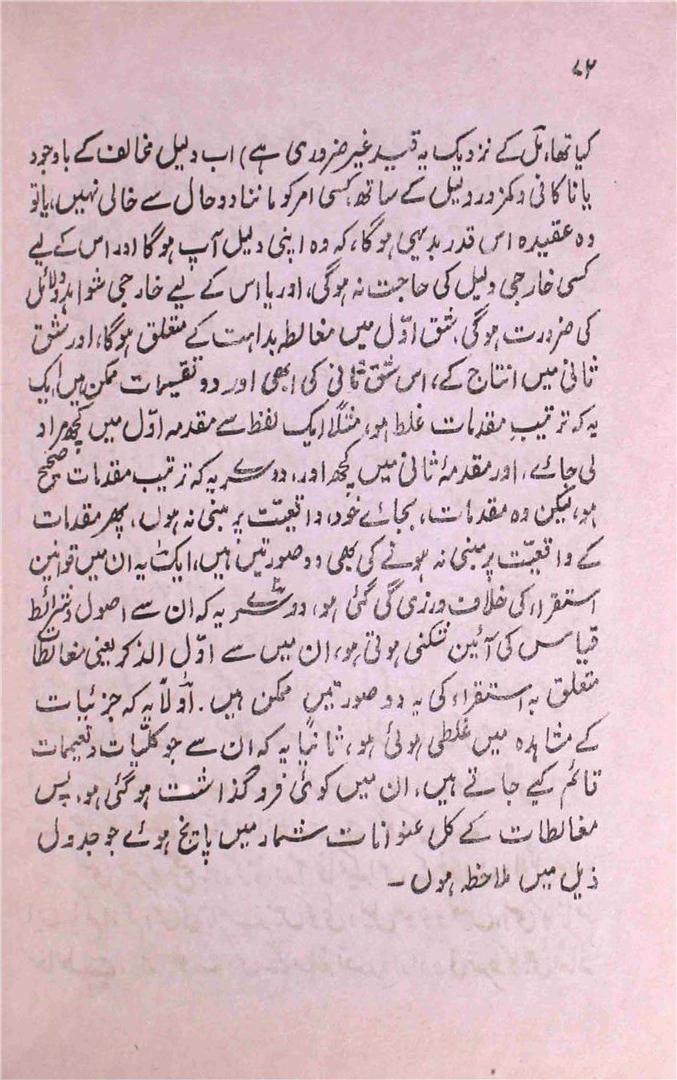 ۷۲
کیا تھا، مل کے نزدیک یہ قید غیر ضروری ہے) اب دلیل مخالف کے باوجود
یا ناکافی و کمزور دلیل کے ساتھ کسی امر کو ماننا دو حال سے خالی نہیں، یا تو
وہ عقیدہ اس قدر بدیہی ہوگا، کہ وہ اپنی دلیل آپ ہوگا اور اس کے لیے
کسی خارجی دلیل کی حاجت نہ ہوگی، اور یا اس کے لیے خارجی شواہد و دلائل
کی ضرورت ہوگی، شق اوّل میں مغالطہ بداہت کے متعلق ہوگا، اور شق
ثانی میں انتاج کے، اس شق ثانی کی ابھی اور دو تقسیمات ممکن ہیں ایک
یہ کہ ترتیبِ مقدمات غلط ہو، مثلاً ایک لفظ سے مقدمہ اوّل میں کچھ مراد
لی جائے، اور مقدمۂ ثانی میں کچھ اور، دوسرے یہ کہ ترتیب مقدمات صحیح
ہو، لیکن وہ مقدمات، بجائے خود، واقعیّت پر مبنی نہ ہوں، پھر مقدمات
کے واقعیّت پر مبنی نہ ہونے کی بھی دو صورتیں ہیں، ایک یہ ان میں قوانین
استقراء کی خلاف ورزی کی گئی ہو، دوسرے یہ کہ ان سے اصول و شرائط
قیاس کی آئین شکنی ہوتی ہو، ان میں سے اوّل الذکر یعنی مغالطات
متعلق بہ استقراء کی یہ دو صورتیں ممکن ہیں۔ اولاً یہ کہ جزئیات
کے مشاہدہ میں غلطی ہوئی ہو، ثانیاً یہ کہ ان سے جو کلیّات و تعمیمات
قائم کیے جاتے ہیں، ان میں کوئی فروگذاشت ہوگئی ہو، پس
مغالطات کے کل عنوانات شمار میں پانچ ہوئے جو جدول
ذیل میں ملاحظہ ہوں ۔